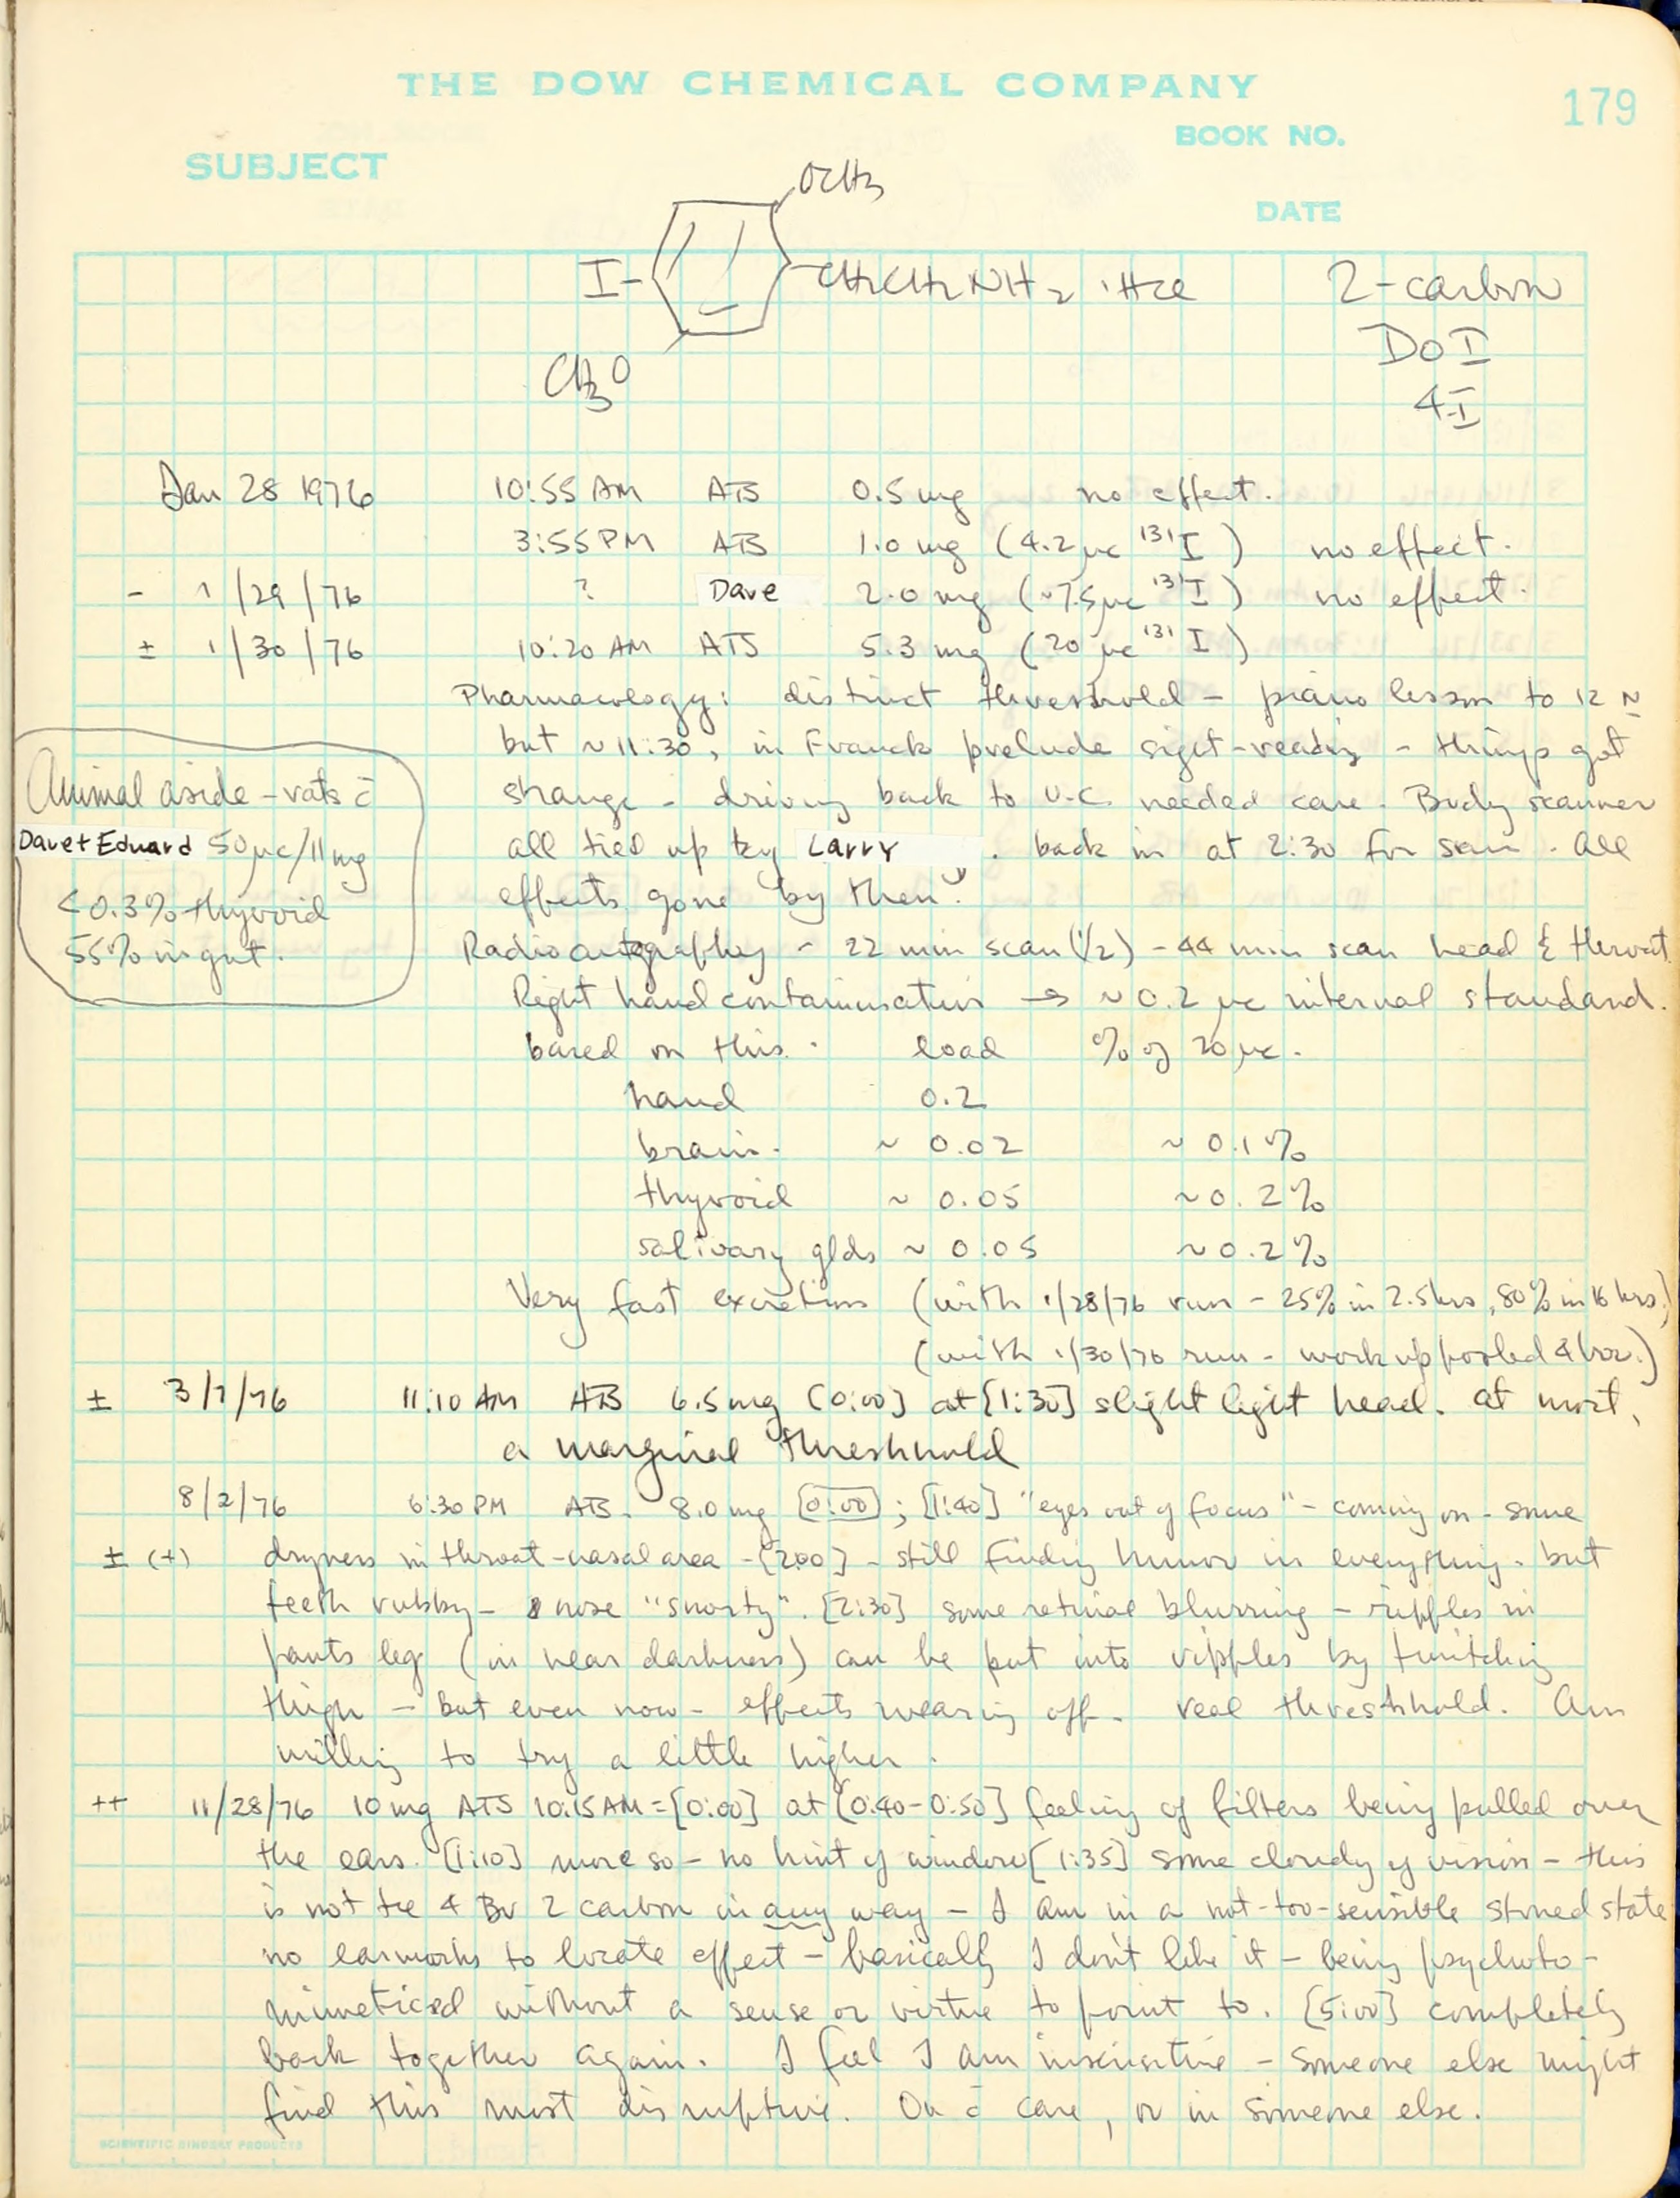 THE DOW CHEMICAL COMPANY
179
BOOK NO.
SUBJECT
DATE
OCH3
I- -CH2CH2NH2 · HCl 2-carbon
DOI
CH3O
4-I
Jan 28 1976 10:55 AM ATS 0.5 mg no effect.
3:55 PM ATS 1.0 mg (4.2 μc 131I) no effect.
- 1/29/76 ? Dave 2.0 mg (~7.5 μc 131I) no effect.
± 1/30/76 10:20 AM ATS 5.3 mg (20 μc 131I)
Pharmacology: distinct threshold - piano lesson to 12 N
but ~11:30, in Franck prelude sight-reading - things got
strange - driving back to U.C. needed care. Body scanner
all tied up by Larry. back in at 2:30 for scan. All
effects gone by then.
Animal aside - rats c̄
Dave + Edward 50 μc/11 mg
<0.3% thyroid
55% in gut.
Radioautography - 22 min scan (1/2) - 44 min scan head & throat.
Right hand contamination → ~0.2 μc internal standard.
based on this. load % of 20 μc.
hand 0.2
brain. ~ 0.02 ~ 0.1%
thyroid ~ 0.05 ~ 0.2%
salivary glds ~ 0.05 ~ 0.2%
Very fast excretion (with 1/28/76 run - 25% in 2.5 hrs, 80% in 16 hrs.)
(with 1/30/76 run - work up pooled 4 hrs.)
± 3/7/76 11:10 AM ATS 6.5 mg [0:00] at [1:30] slight light head. at most,
a marginal threshhold
8/2/76 6:30 PM ATS. 8.0 mg [0:00]; [1:40] "eyes out of focus" - coming on - some
± (+) dryness in throat-nasal area - [2:00] - still finding humor in everything. but
teeth rubby - nose "snorty". [2:30] some retinal blurring - ripples in
pants leg (in near darkness) can be put into ripples by twitching
thigh - but even now - effects wearing off. real threshhold. Am
willing to try a little higher.
++ 11/28/76 10 mg ATS 10:15 AM = [0:00] at [0:40-0:50] feeling of filters being pulled over
the ears. [1:10] more so - no hint of window [1:35] some cloudy of vision - this
is not the 4 Br 2 carbon in any way - I am in a not-too-sensible stoned state
no earmarks to locate effect - basically I don't like it - being psychoto-
mimeticized without a sense or virtue to point to. [5:00] completely
back together again. I feel I am insensitive - someone else might
find this most disruptive. On c̄ care, or in someone else.
SCIENTIFIC BINDERY PRODUCTS